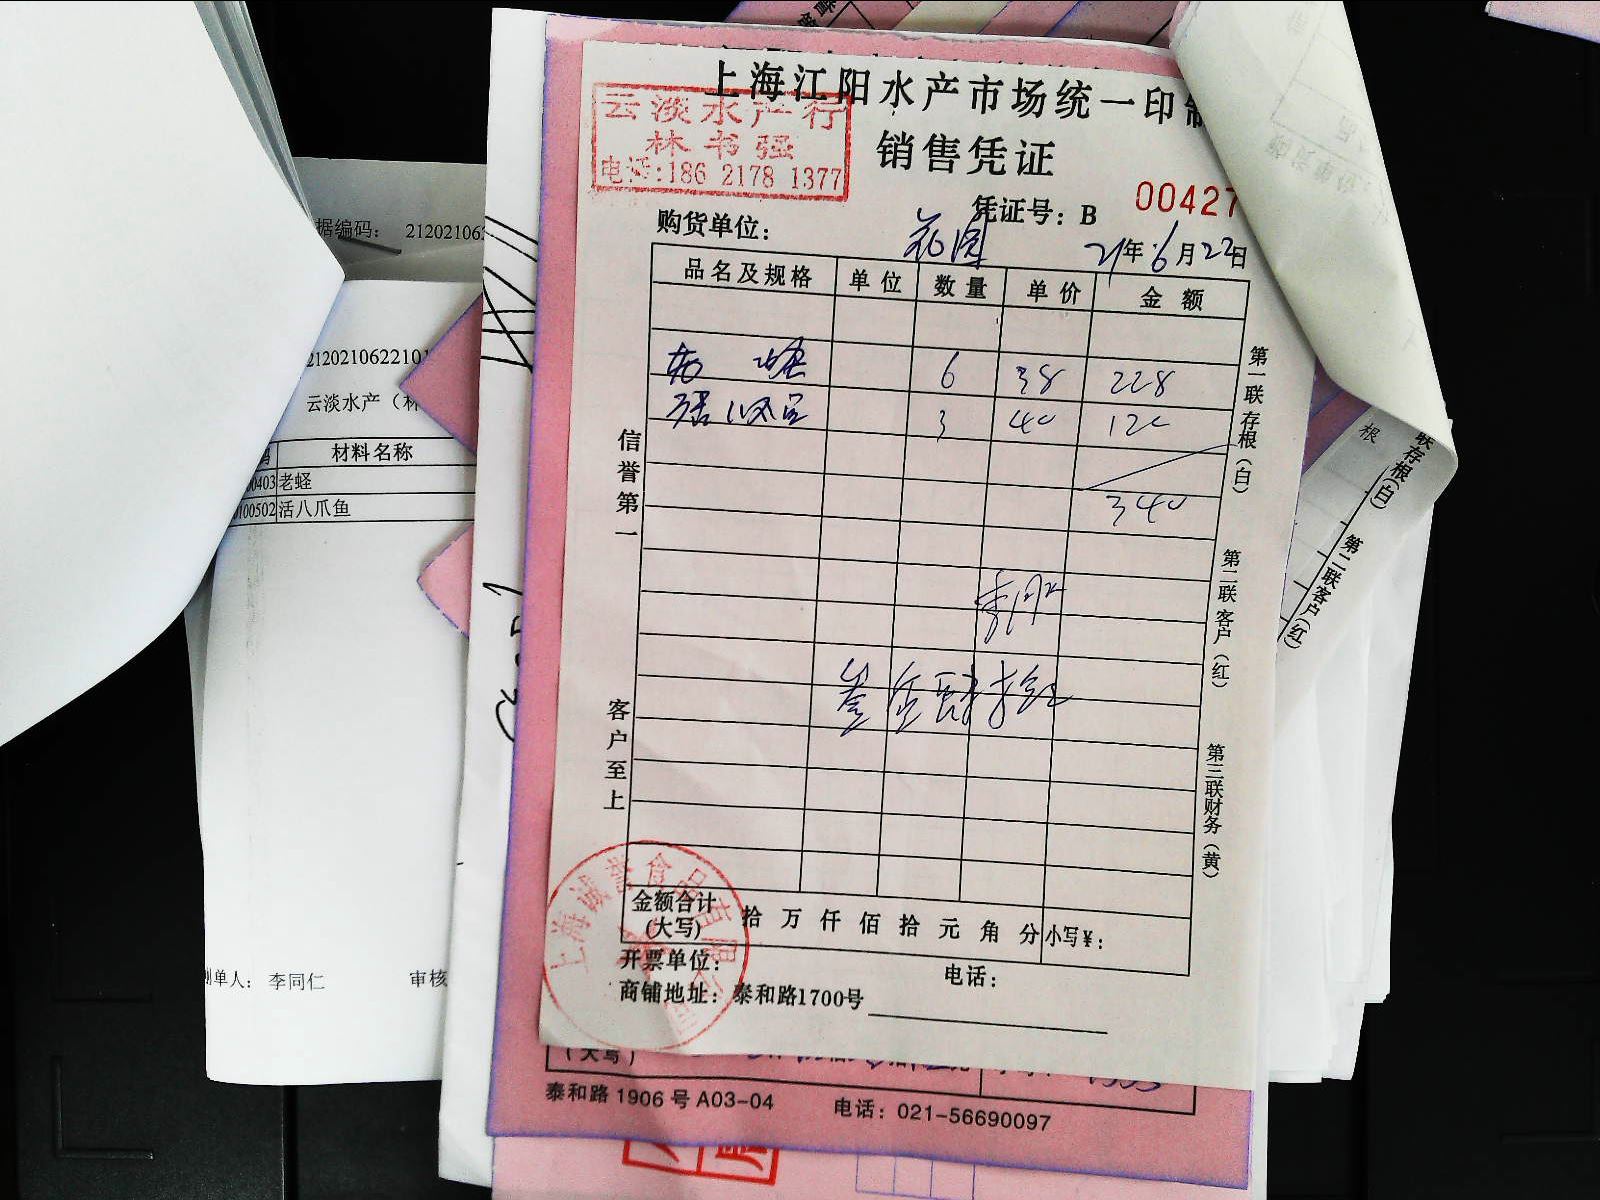 上海江阳水产市场统一印制
云淡水产行
林书强
电话:186 2178 1377
销售凭证
凭证号：B 00427
购货单位：
21年6月22日
品名及规格 单位 数量 单价 金额
6 38 228
3 40 120
340
叁佰肆拾
信誉第一
客户至上
第一联存根（白）
第二联客户（红）
第三联财务（黄）
金额合计
(大写) 拾 万 仟 佰 拾 元 角 分 小写¥：
上海诚誉食品有限公司
开票单位： 电话：
商铺地址：泰和路1700号
(大写)
泰和路 1906 号 A03-04 电话：021-56690097
据编码： 212021062
2120210622101
云淡水产（林
材料名称
0403 老蛏
100502 活八爪鱼
制单人： 李同仁 审核
根
联存根(白)
第二联客户(红)